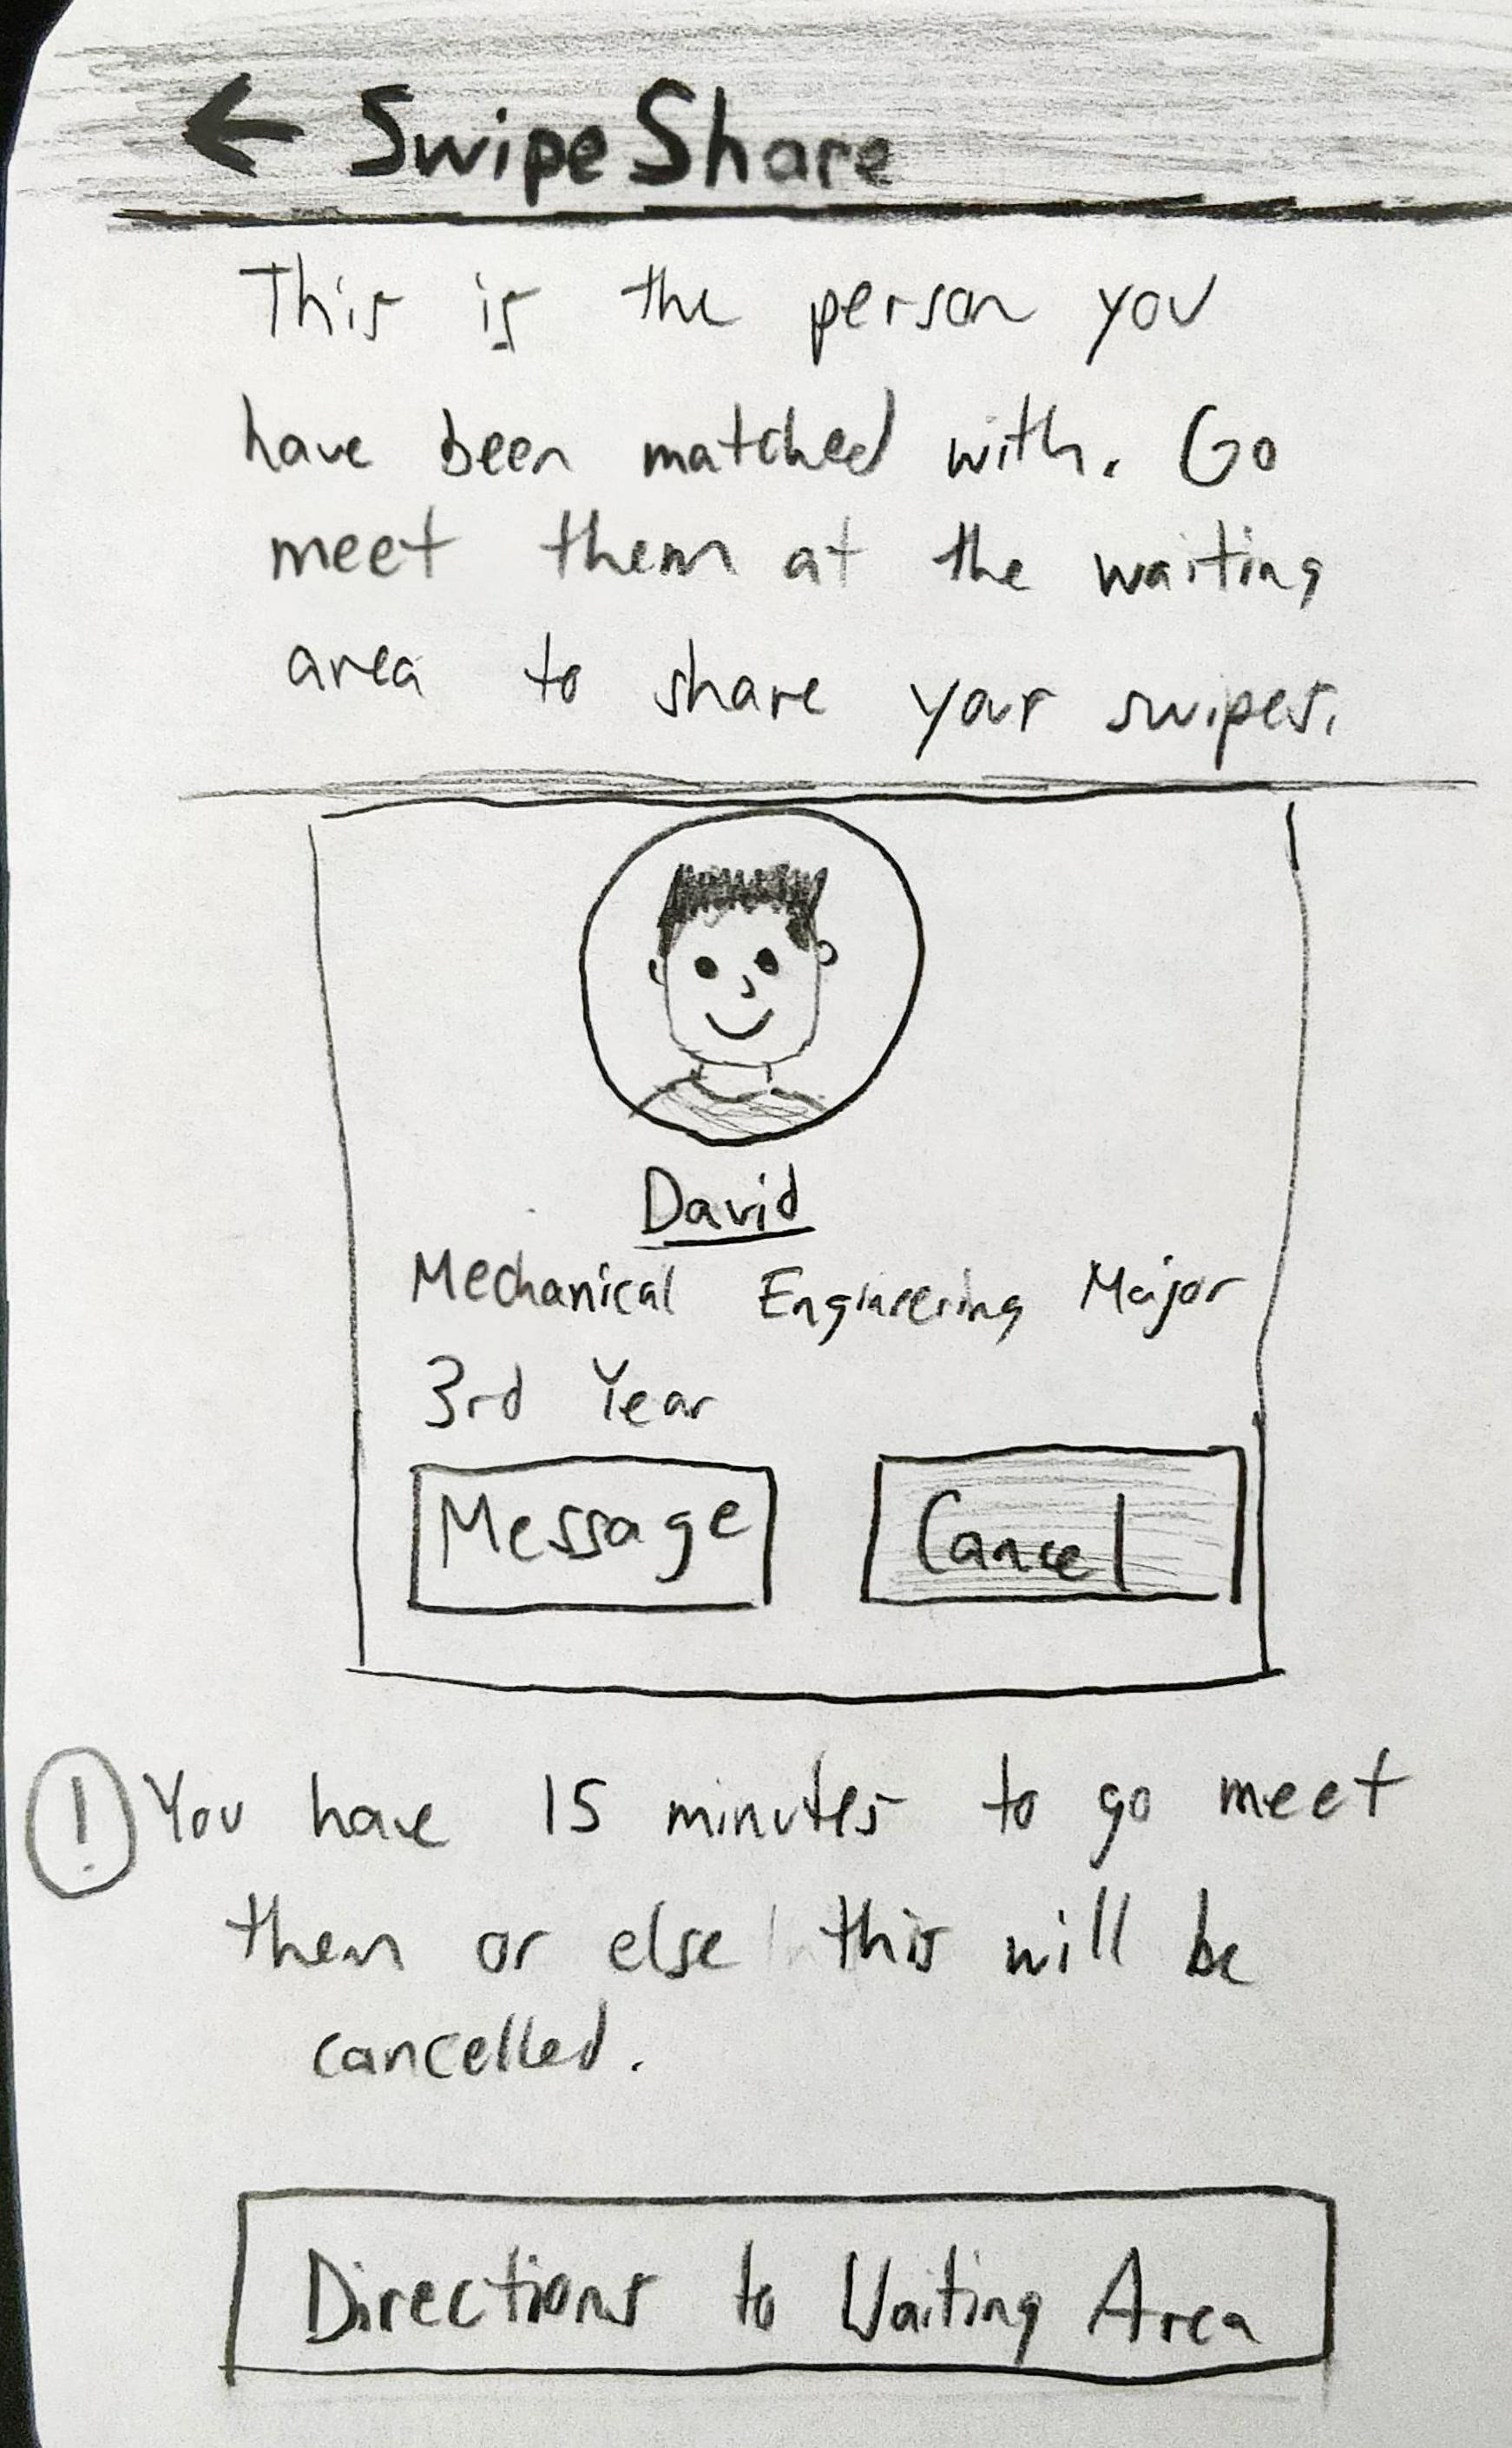 ← SwipeShare
This is the person you
have been matched with. Go
meet them at the waiting
area to share your swipes.
David
Mechanical Engineering Major
3rd Year
Message Cancel
! You have 15 minutes to go meet
them or else this will be
cancelled.
Directions to Waiting Area